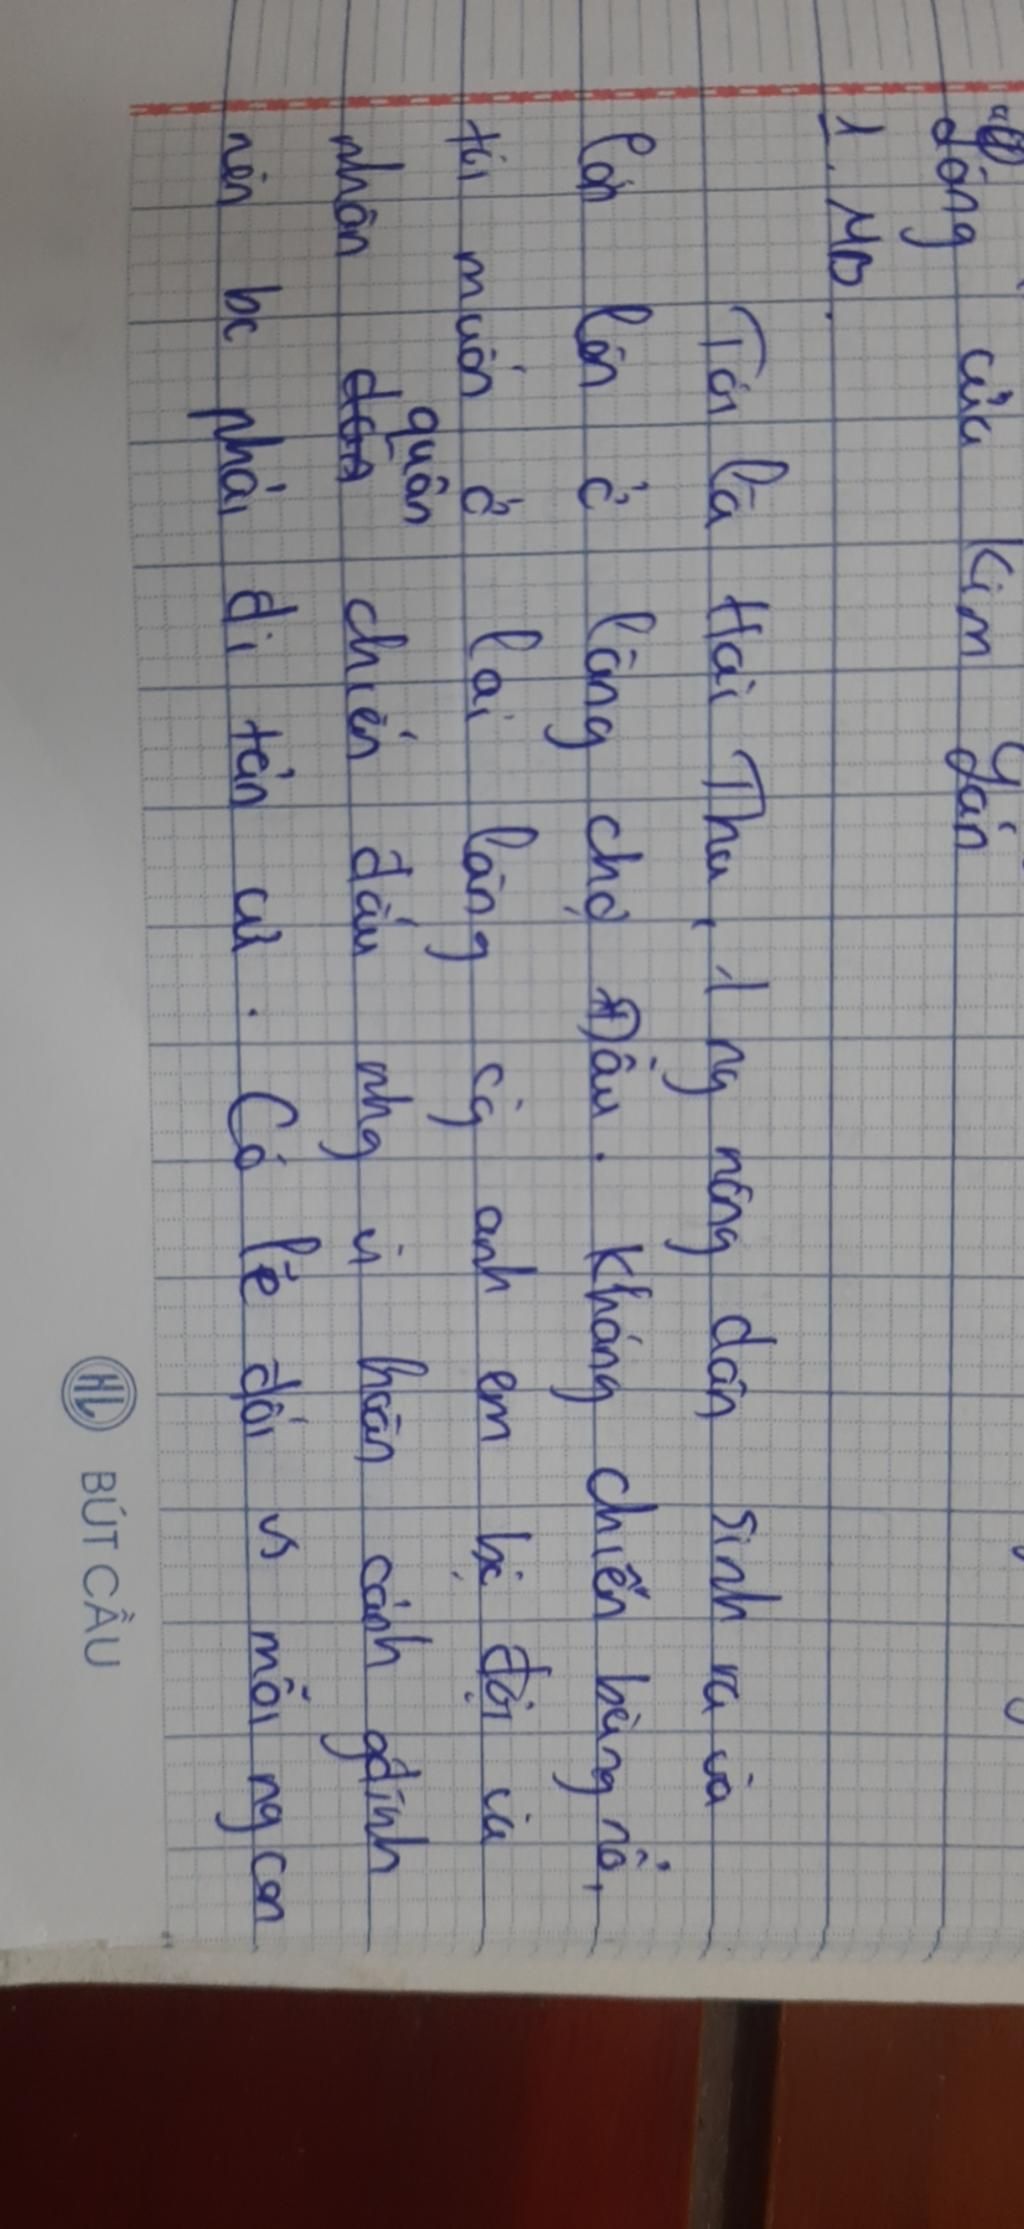 động của Kim Lân
1. MB.
Tôi là Hai Thu, 1 ng nông dân sinh ra và
lớn lên ở làng chợ Dầu. Kháng chiến bùng nổ,
tôi muốn ở lại làng cg anh em bộ đội và
quân
nhân chiến đấu nhg vì hoàn cảnh gđình
nên bc phải đi tản cư. Có lẽ đối vs mỗi ng con
HL BÚT CẦU